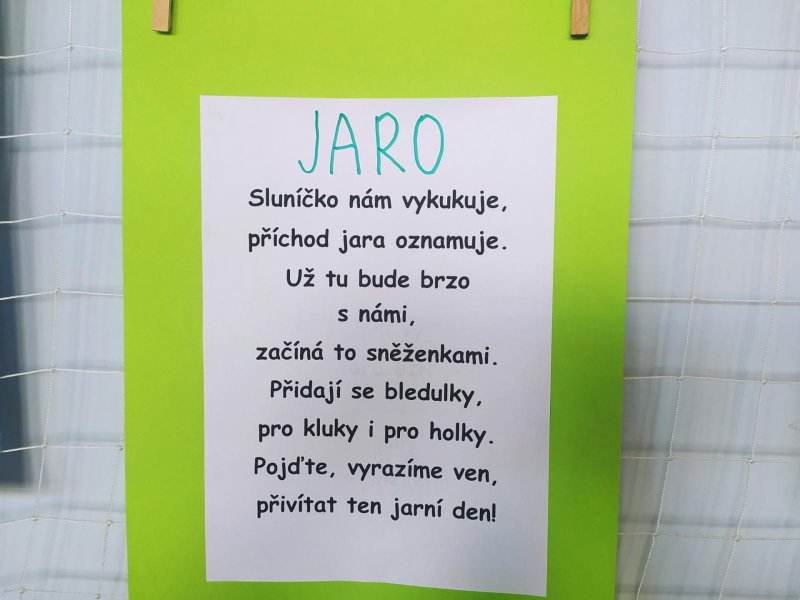 JARO
Sluníčko nám vykukuje,
příchod jara oznamuje.
Už tu bude brzo
s námi,
začíná to sněženkami.
Přidají se bledulky,
pro kluky i pro holky.
Pojďte, vyrazíme ven,
přivítat ten jarní den!